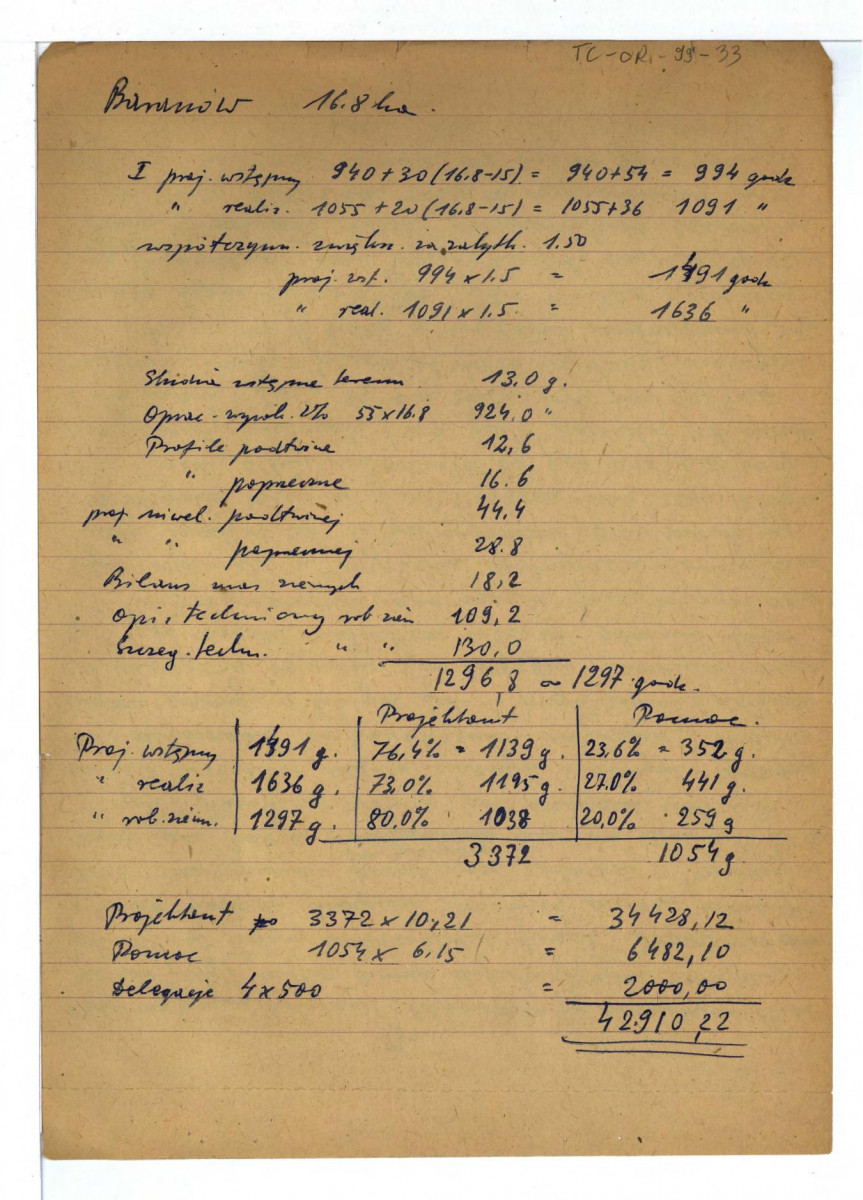 TC-OR.-99-33
Baranów 16.8 ha.
I proj. wstępny 940+30(16.8-15). = 940+54 = 994 godz
" realiz. 1055 +20(16.8-15) = 1055+36 1091 "
współczynn. zwiększ. za zabytk. 1.50
proj. wst. 994 x 1.5 = 1491 godz
" real. 1091 x 1.5 = 1636 "
Studia wstępne terenu 13,0 g.
Oprac. wysok. 2% 55x16.8 924,0 "
Profile podłużne 12,6
" poprzeczne 16.6
proj niwel. podłużnej 44.4
" " poprzecznej 28.8
Bilans mas ziemnych 18,2
Opis techniczny rob. ziem 109,2
Szczeg. techn. " " 130,0
1296,8 ~ 1297 godz.
Projektant Pomoc.
Proj. wstępny 1491 g. 76,4% = 1139 g. 23,6% = 352 g.
" realiz 1636 g. 73,0% 1195 g. 27,0% 441 g.
" rob. ziemn. 1297 g. 80,0% 1038 20,0% 259 g
3372 1054 g
Projektant po 3372 x 10,21 = 34428,12
Pomoc 1054 x 6,15 = 6482,10
Delegacje 4x500 = 2000,00
42910,22